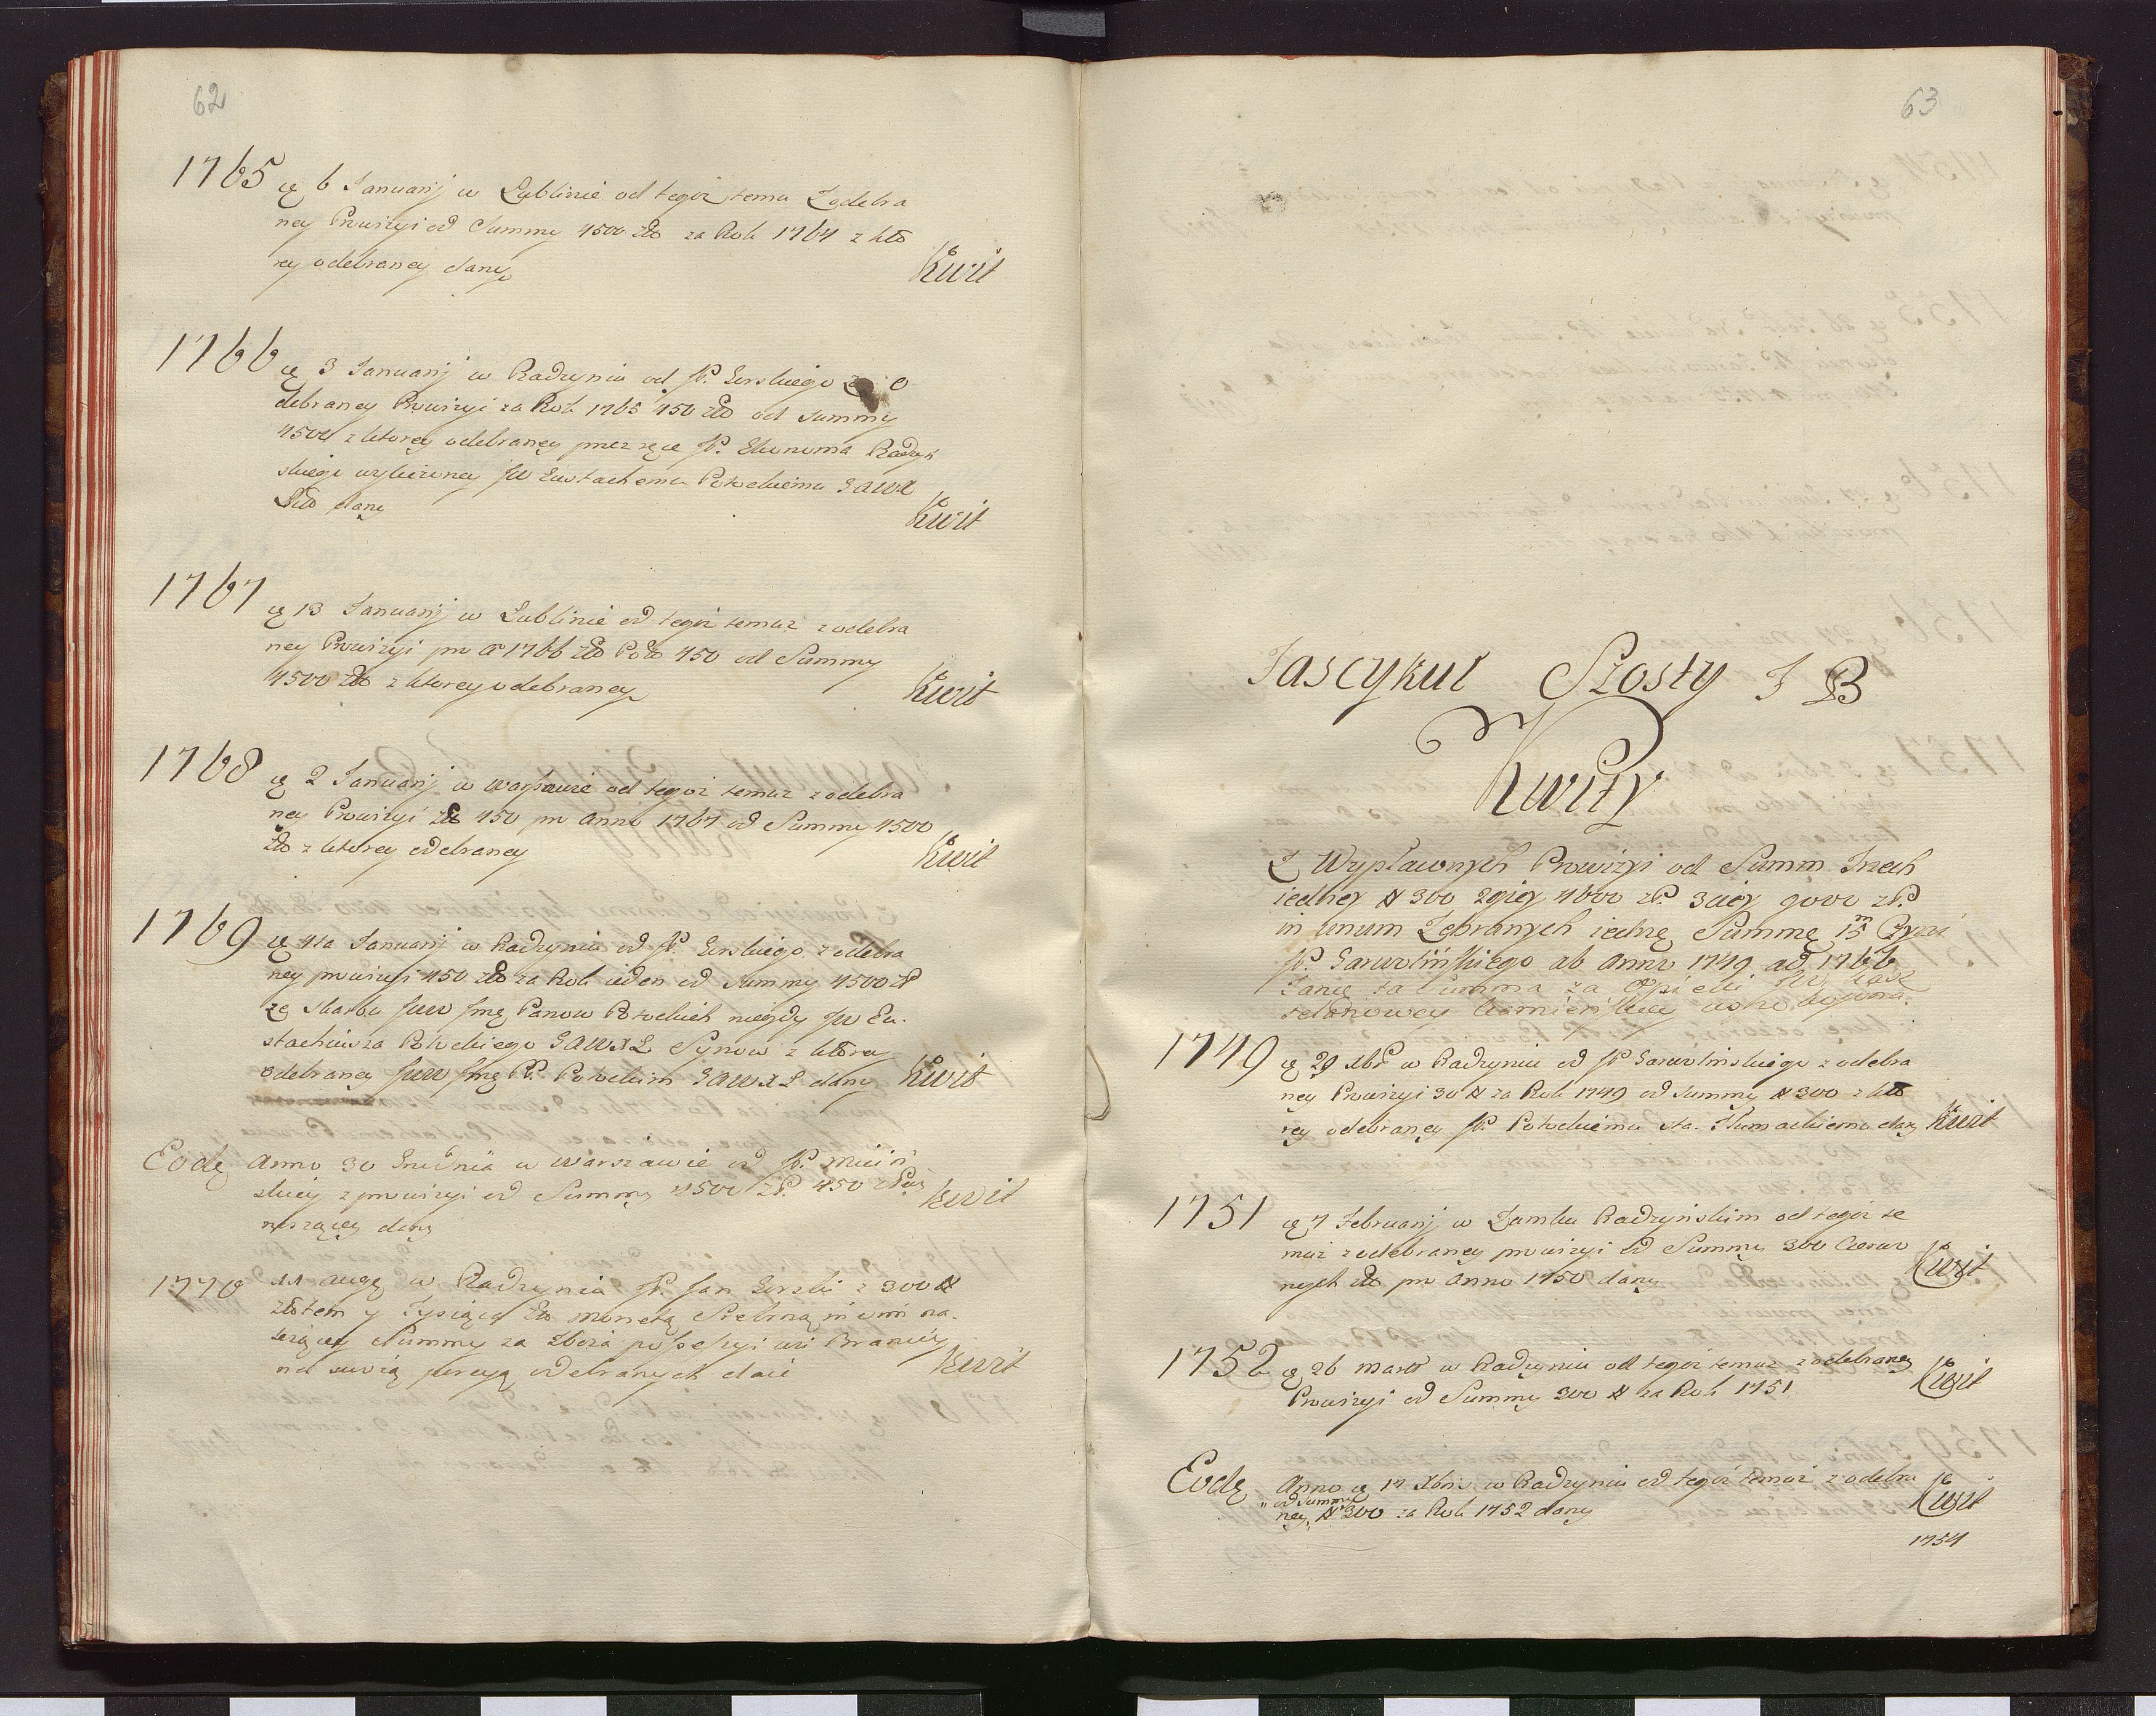 62
1765 ę 6 Januarij w Lublinie od tegoż temu Zodebra
ney Prowizyi od Summy 4500 zło za Rok 1764 z któ
rey odebraney dany
Kwit
1766 ę 3 Januarij w Radzyniu od JP. Gorskiego z o
debraney Prowizyi za Rok 1765 450 zło od Summy
4500 z ktorey odebraney przez ręce JP. Ekonoma Radzyń
skiego wyliczoney JW Eustachemu Potockiemu GAWX
Lito dany
Kwit
1767 ę 13 Januarij w Lublinie od tegoż temuz z odebra
ney Prowizyi pro Ao 1766 zło Polo 450 od Summy
4500 zło z ktorey odebraney
Kwit
1768 ę 2 Januarij w Warszawie od tegoż temuz z odebra
ney Prowizyi zło 450 pro Anno 1767 od Summy 4500
zło z ktorey odebraney
Kwit
1769 ę 4ta Januarij w Radzyniu od JP. Gorskiego z odebra
ney prowizyi 450 zło za Rok ieden od Summy 4500 zł
ze skarbu JWW Jmę Panow Potockich niegdy JW Eu.
stachiusza Potockiego GAWXL Synow z ktorey
odebraney JWW Jmę PP. Potockim GAWXL dany Kwit
Eodę Anno 30 Grudnia w Warszawie od JP.
skiey z prowizyi od Summy 4500 zP. 450 zł
noszącey dany
Kwit
1770 11 augę w Radzyniu JP. Jan Gorski z 300 #
złotem y Tysiąca zło monetą Srebrną in vim na.
leżącey Summy za zboża possessyi wsi Branicy
na swoią percyą odebranych daie
Kwit
63
Fascykul Szosty J B
Kwity
Z Wypłaconych Prowizyi od Summ Trzech
iedney # 300 2giey 4600 zP. 3ciey 9000 zP.
in unum Zebranych iednę Summę 15m Czyni
JP. Garwolińskiego ab Anno 1749 ad 1766
Tanię ta Summa za Opieki JW Kasz
telanowey Kamieńskiey
1749 ę 29 xbr w Radzyniu od JP Garwolinskiego z odebra
ney Prowizyi 30 # za Rok 1749 od Summy # 300 z któ
rey odebraney JP. Potockiemu Sta. Tłumackiemu dany Kwit
1751 ę 7 Februarij w Zamku Radzyńskim od tegoż te
muż z odebraney prowizyi od Summy 300 Czerwo
nych zło pro Anno 1750 dany
Kwit
1752 ę 26 marti w Radzyniu od tegoż temuz z odebraney
Prowizyi od Summy 300 # za Rok 1751
Kwit
Eodę Anno ę 17 Xbris w Radzyniu od tegoż temuż z odebra
„od Summy
ney„ # 300 za Rok 1752 dany
Kwit
1754